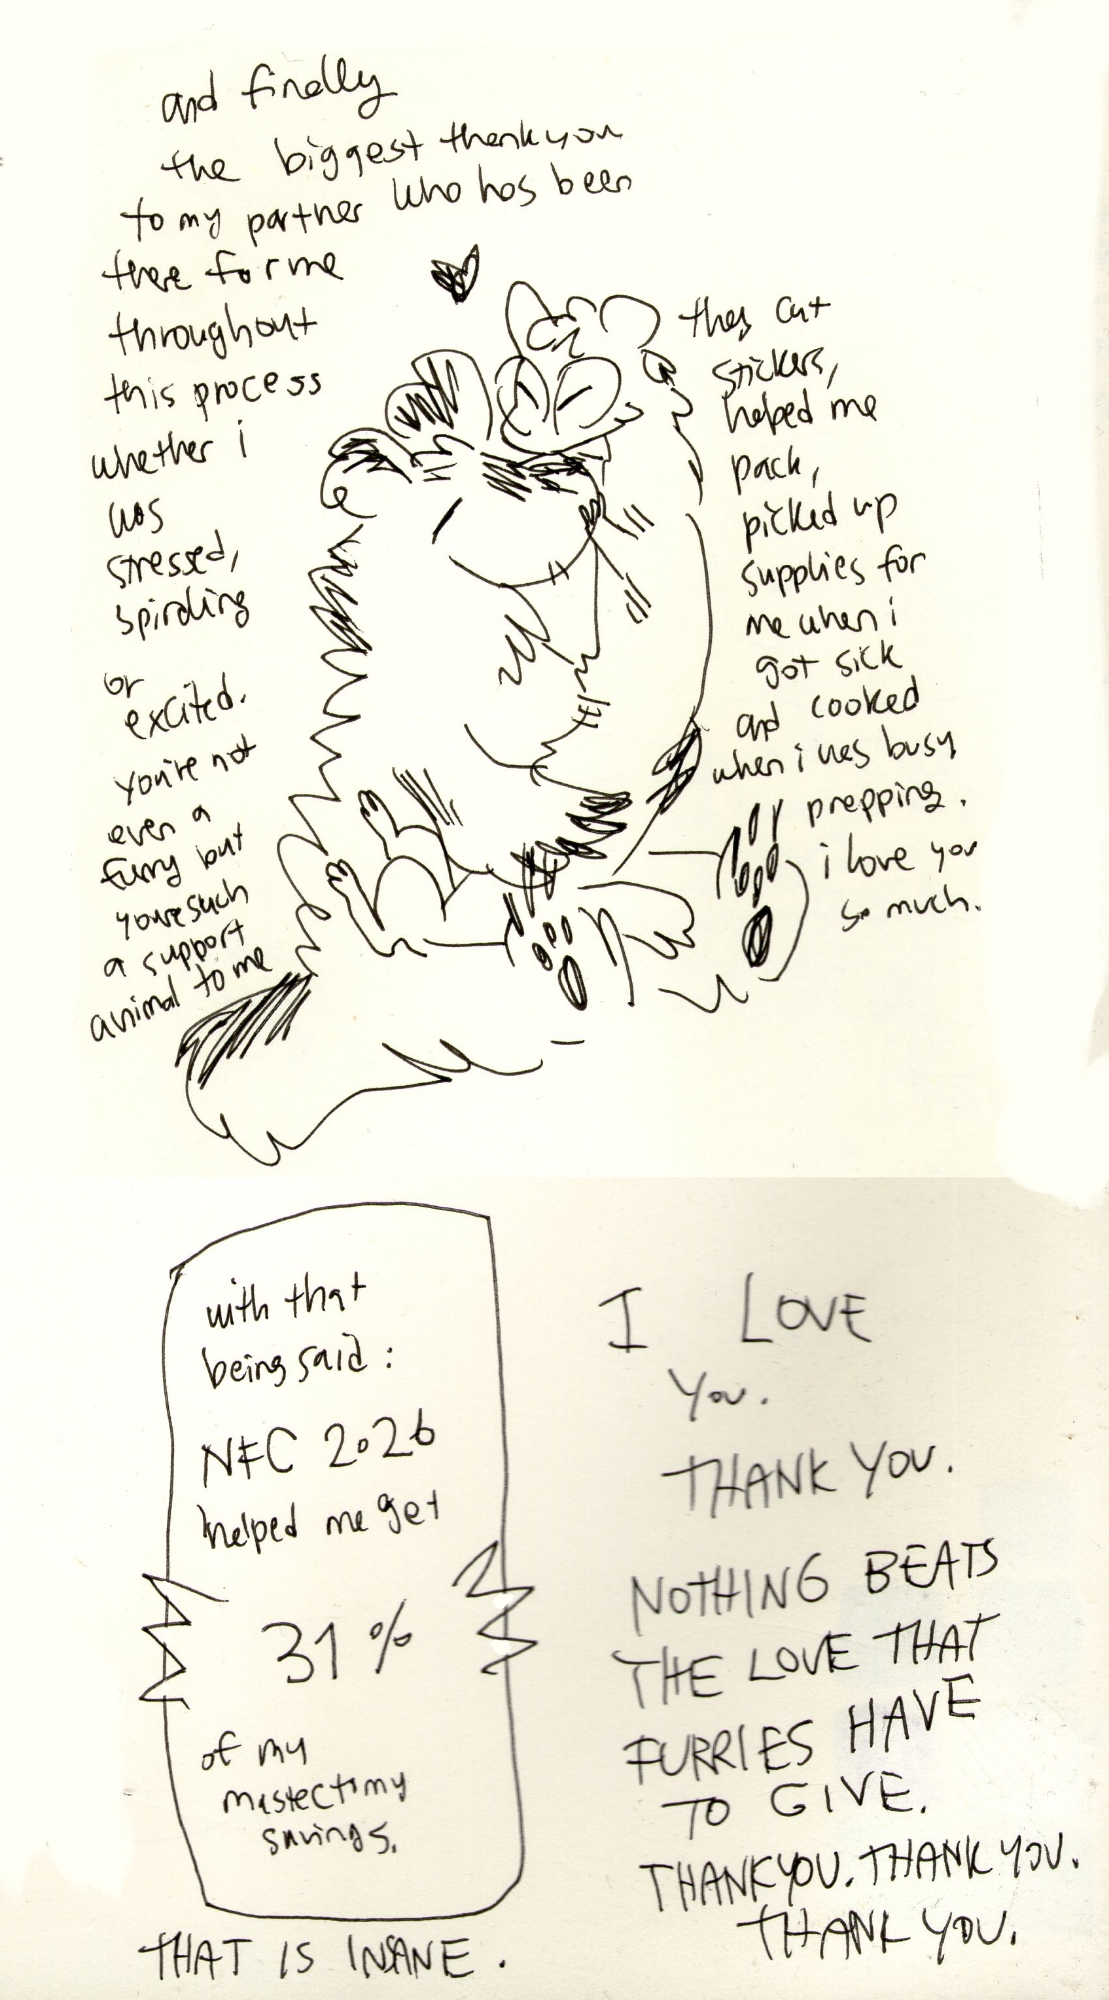 and finally
the biggest thankyou
to my partner who has been
there for me
throughout
this process
whether i
was
stressed,
spiraling
or
excited.
you're not
even a
furry but
youre such
a support
animal to me
they cut
stickers,
helped me
pack,
picked up
supplies for
me when i
got sick
and cooked
when i was busy
prepping.
i love you
so much.
with that
being said:
NFC 2026
helped me get
31%
of my
mastectomy
savings.
THAT IS INSANE.
I LOVE
You.
THANK YOU.
NOTHING BEATS
THE LOVE THAT
FURRIES HAVE
TO GIVE.
THANKYOU. THANK YOU.
THANK YOU.